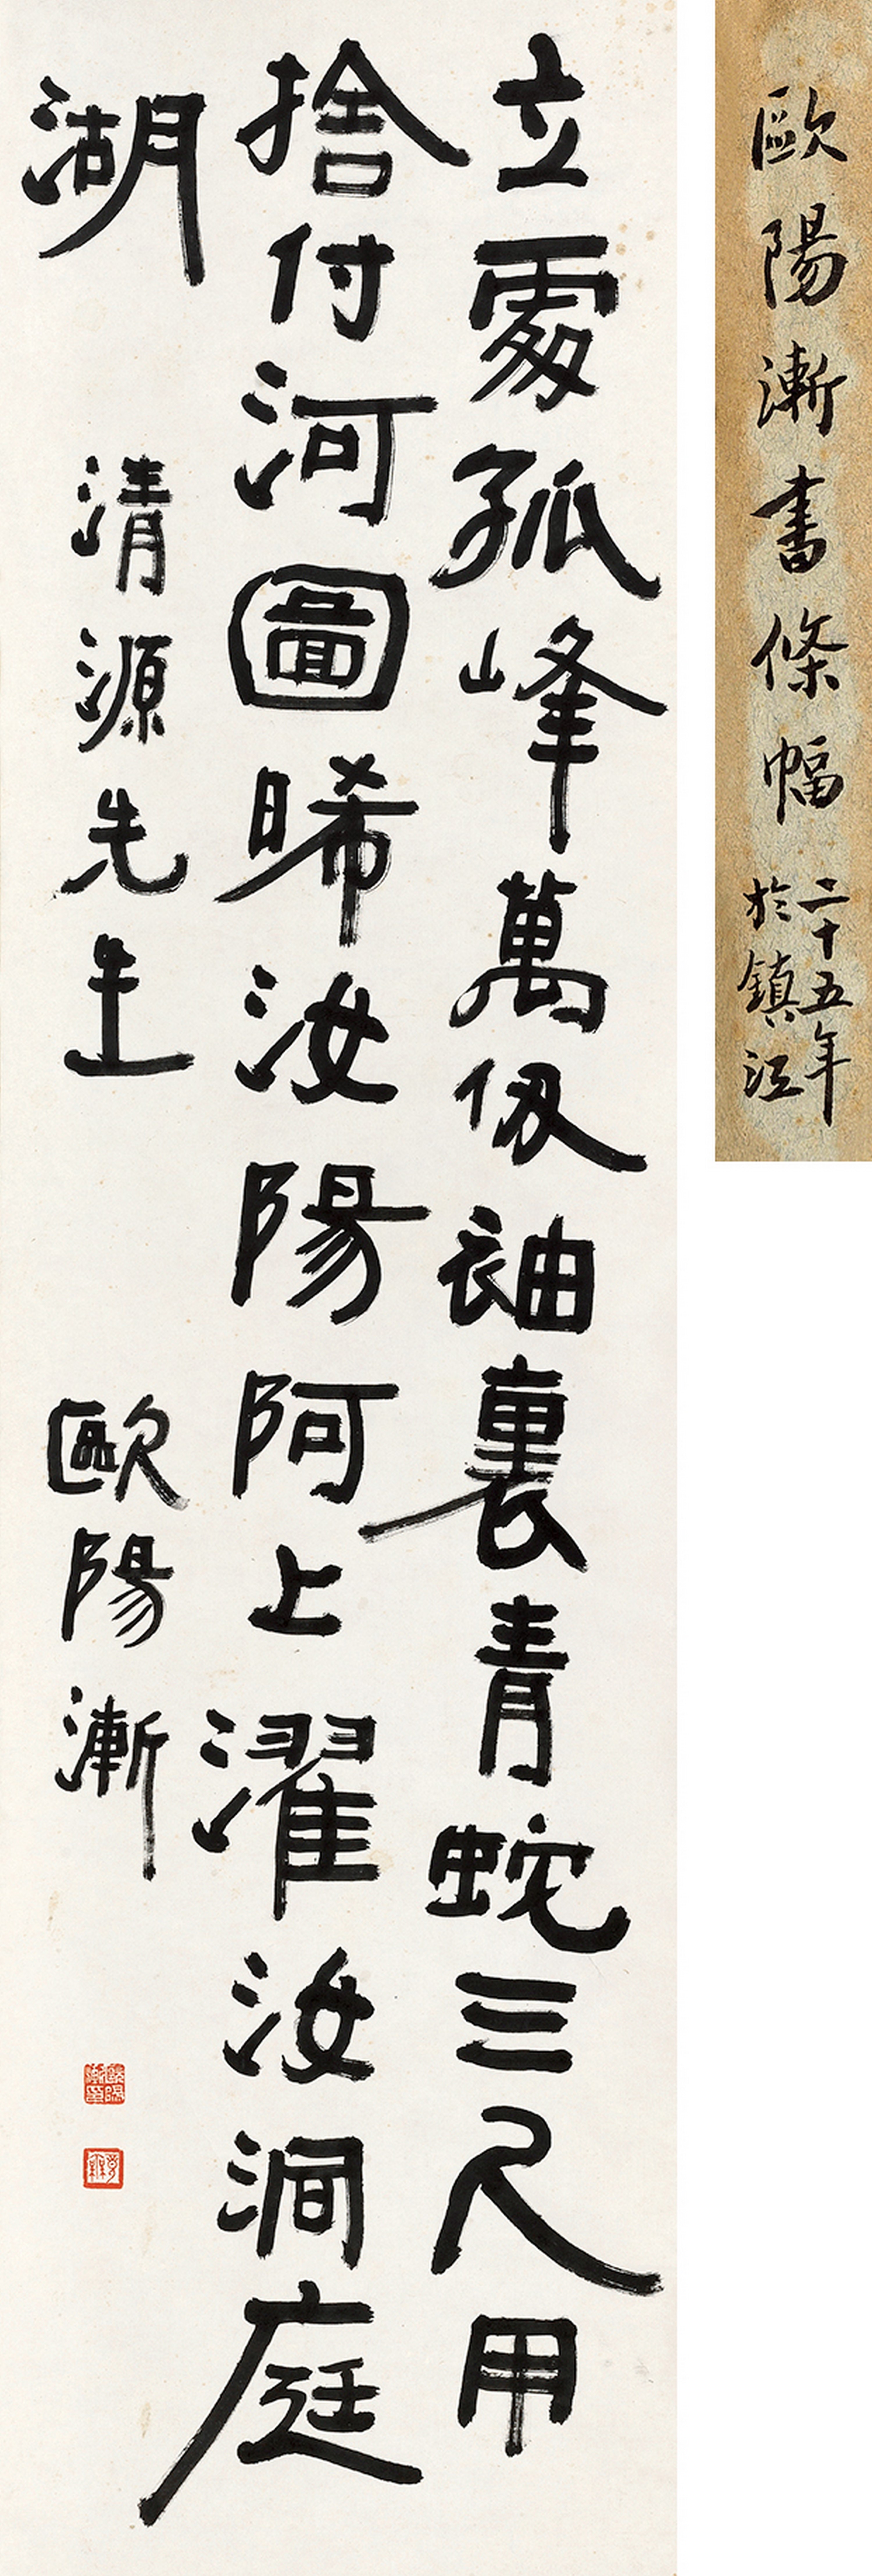 立處孤峰萬仞袖裏青蛇三尺用
捨付河圖晞汝陽阿上濯汝洞庭
湖
清源先生
歐陽漸
歐陽漸書條幅
二十五年
於鎮江